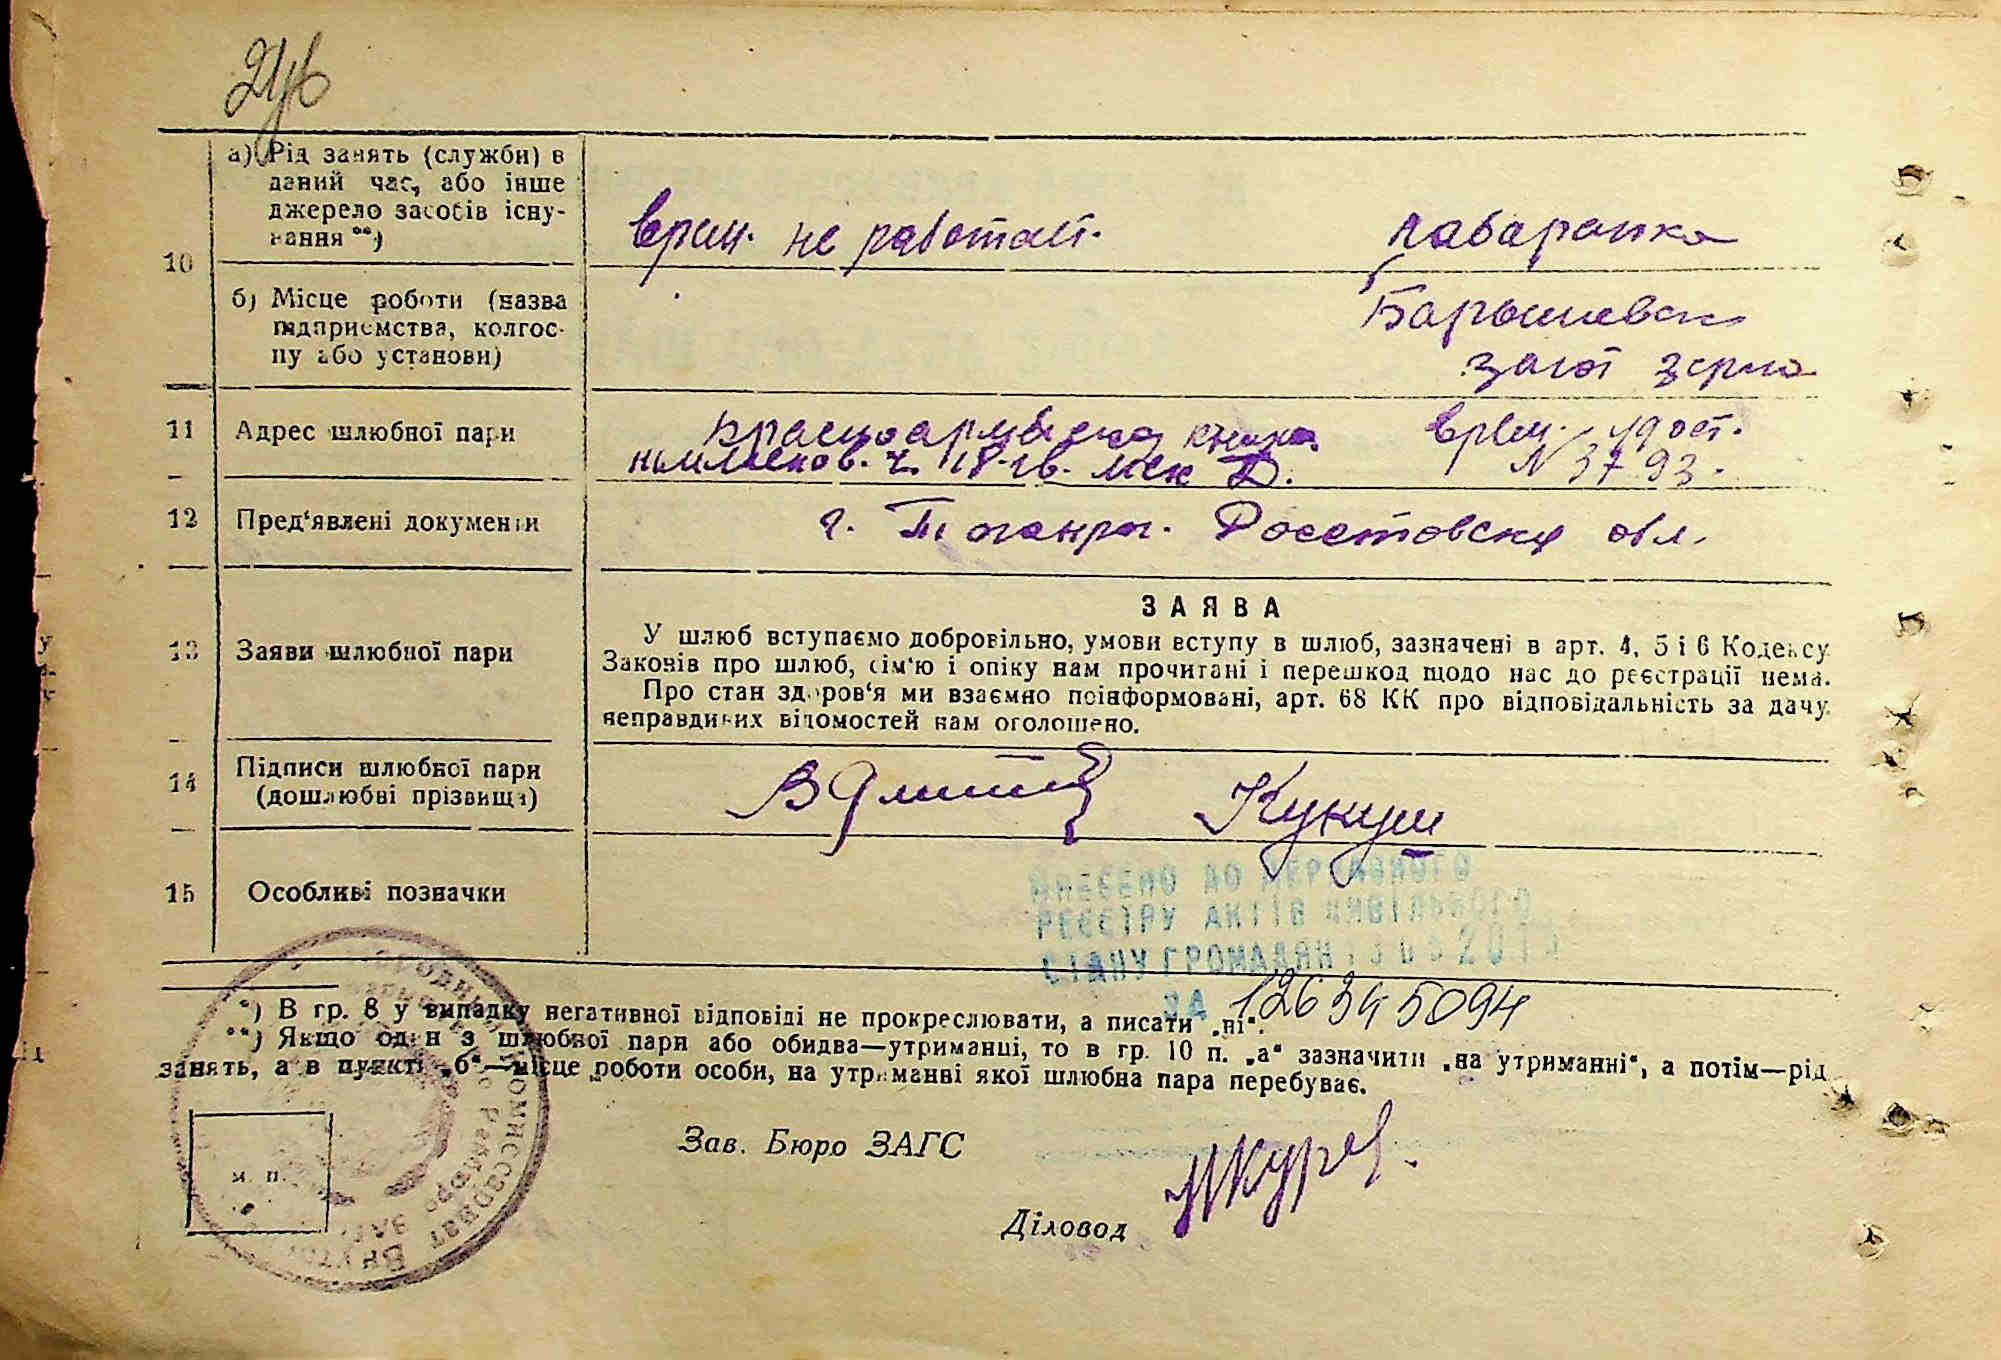 а) Рід занять (служби) в
даний час, або інше
джерело засобів існу-
вання **)
врем. не работает.
лаборантка
10
б) Місце роботи (назва
підприємства, колгос-
пу або установи)
Барышевск
загот зерно
11 Адрес шлюбної пари
Красноармейска книжка
врем. удост.
N 3793.
12 Пред‘явлені документи
г. Таганрог. Росстовску обл.
ЗАЯВА
13 Заяви шлюбної пари
У шлюб вступаємо добровільно, умови вступу в шлюб, зазначені в арт. 4, 5 і 6 Кодексу
Законів про шлюб, сім‘ю і опіку нам прочитані і перешкод щодо нас до реєстрації нема.
Про стан здоров‘я ми взаємно поінформовані, арт. 68 КК про відповідальність за дачу
неправдивих відомостей нам оголошено.
14 Підписи шлюбної пари
(дошлюбні прізвища)
Кукуш
15 Особливі позначки
ВНЕСЕНО ДО ДЕРЖАВНОГО
РЕЄСТРУ АКТІВ ЦИВІЛЬНОГО
СТАНУ ГРОМАДЯН
ЗА
*) В гр. 8 у випадку негативної відповіді не прокреслювати, а писати „ні“.
**) Якщо один з шлюбної пари або обидва—утриманці, то в гр. 10 п. „а“ зазначити „на утриманні“, а потім—рід
занять, а в пункті „б“—місце роботи особи, на утриманні якої шлюбна пара перебуває.
м. п.
Зав. Бюро ЗАГС
Діловод